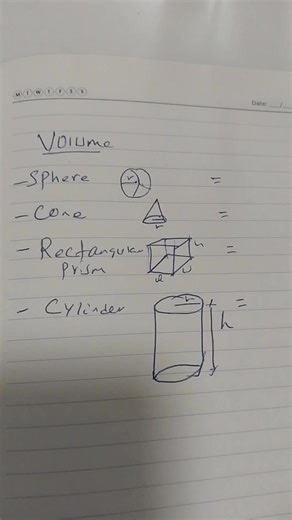 M T W T F S S
Date:
Volume
- Sphere r =
- Cone r =
- Rectangular h =
prism l w
- Cylinder r =
h